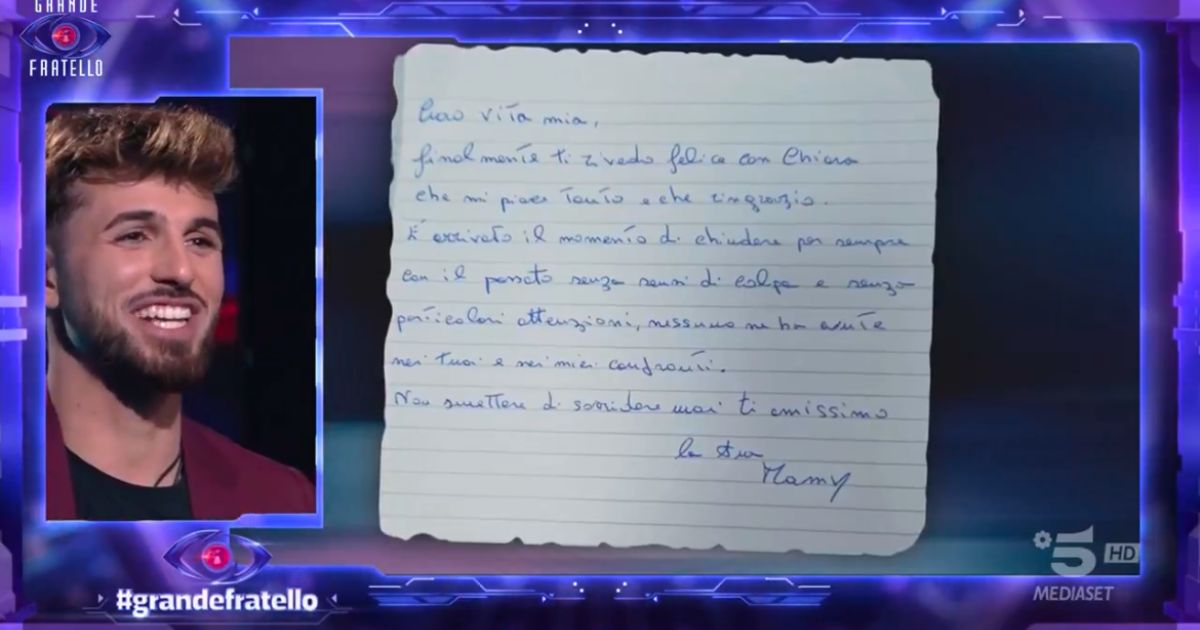 GRANDE
FRATELLO
Ciao vita mia,
finalmente ti rivedo felice con Chiara
che mi piace tanto e che ringrazio.
È arrivato il momento di chiudere per sempre
con il passato senza sensi di colpa e senza
particolari attenzioni, nessuno ne ha avute
nei tuoi e nei miei confronti.
Non smettere di sorridere mai ti amissimo
la tua
Mamy
5 HD
MEDIASET
#grandefratello